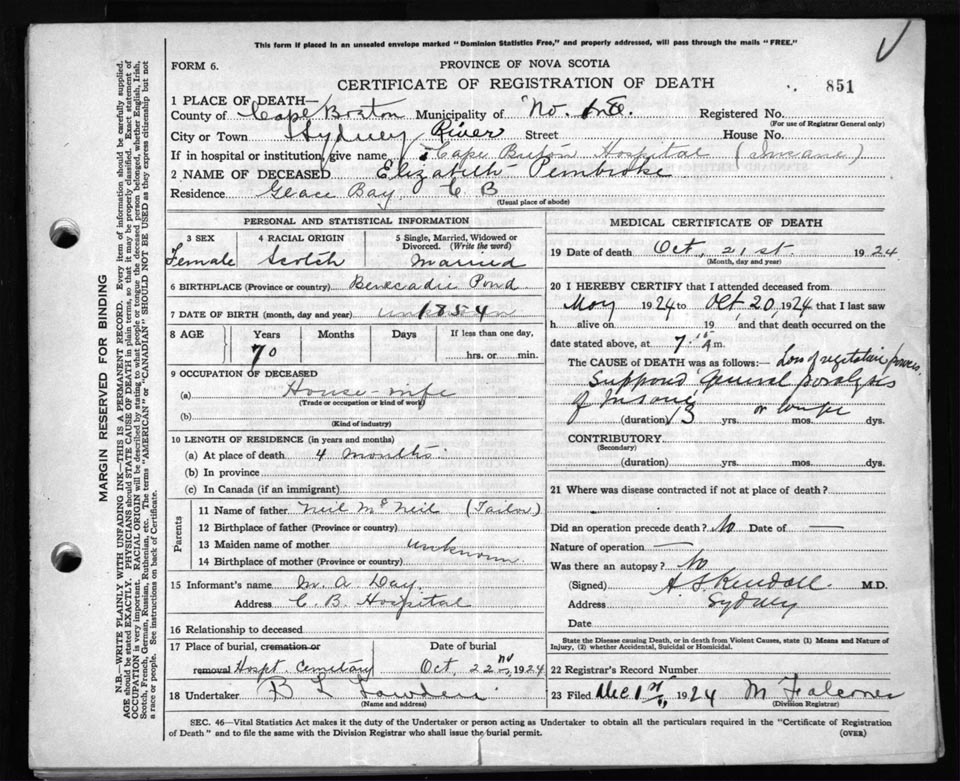 This form if placed in an unsealed envelope marked "Dominion Statistics Free," and properly addressed, will pass through the mails "FREE."
FORM 6.
PROVINCE OF NOVA SCOTIA
CERTIFICATE OF REGISTRATION OF DEATH
851
1 PLACE OF DEATH—
County of Cape Breton Municipality of No. Registered No.
(For use of Registrar General only)
City or Town Sydney River Street House No.
If in hospital or institution, give name Cape Breton Hospital (Insane)
2 NAME OF DECEASED Elizabeth Pembroke
Residence Glace Bay, C B
(Usual place of abode)
PERSONAL AND STATISTICAL INFORMATION
3 SEX 4 RACIAL ORIGIN 5 Single, Married, Widowed or Divorced. (Write the word)
Female Scotch Married
6 BIRTHPLACE (Province or country) Benecadie Pond
7 DATE OF BIRTH (month, day and year) unknown 1854
8 AGE Years Months Days If less than one day,
70 hrs. or min.
9 OCCUPATION OF DECEASED
(a) House-wife
(Trade or occupation or kind of work)
(b)
(Kind of industry)
10 LENGTH OF RESIDENCE (in years and months)
(a) At place of death 4 months
(b) In province
(c) In Canada (if an immigrant)
Parents
11 Name of father Neil McNeil (Tailor)
12 Birthplace of father (Province or country)
13 Maiden name of mother unknown
14 Birthplace of mother (Province or country)
15 Informant's name M. A. Day
Address C. B. Hospital
16 Relationship to deceased
17 Place of burial, cremation or removal Date of burial
Hospt. Cemetary Oct, 22nd, 1924
18 Undertaker B L
(Name and address)
MEDICAL CERTIFICATE OF DEATH
19 Date of death Oct, 21st. 1924
(Month, day and year)
20 I HEREBY CERTIFY that I attended deceased from
May 1924 to Oct, 20, 1924 that I last saw
h alive on 19 and that death occurred on
date stated above, at 7.15 a m.
The CAUSE OF DEATH was as follows:— Loss of vegetative powers.
Suppond General paralysis
of Insane
(duration) 13 yrs. mos. dys.
CONTRIBUTORY
(Secondary)
(duration) yrs. mos. dys.
21 Where was disease contracted if not at place of death?
Did an operation precede death? No Date of —
Nature of operation —
Was there an autopsy? No
(Signed) A S Kendall M.D.
Address Sydney
Date
State the Disease causing Death, or in death from Violent Causes, state (1) Means and Nature of Injury, (2) whether Accidental, Suicidal or Homicidal.
22 Registrar's Record Number
23 Filed Dec 1st 1924 M Falconer
(Division Registrar)
SEC. 46—Vital Statistics Act makes it the duty of the Undertaker or person acting as Undertaker to obtain all the particulars required in the "Certificate of Registration
of Death" and to file the same with the Division Registrar who shall issue the burial permit. (OVER)
MARGIN RESERVED FOR BINDING
N.B.—WRITE PLAINLY WITH UNFADING INK—THIS IS A PERMANENT RECORD. Every item of information should be carefully supplied.
AGE should be stated EXACTLY. PHYSICIANS should STATE CAUSE OF DEATH in plain terms, so that it may be properly classified. Exact statement of
OCCUPATION is very important. RACIAL ORIGIN will be described by stating to what people or tongue the deceased person belonged, whether English, Irish,
Scotch, French, German, Russian, Ruthenian, etc. The terms "AMERICAN" or "CANADIAN" SHOULD NOT BE USED as they express citizenship but not
a race or people. See instructions on back of Certificate.